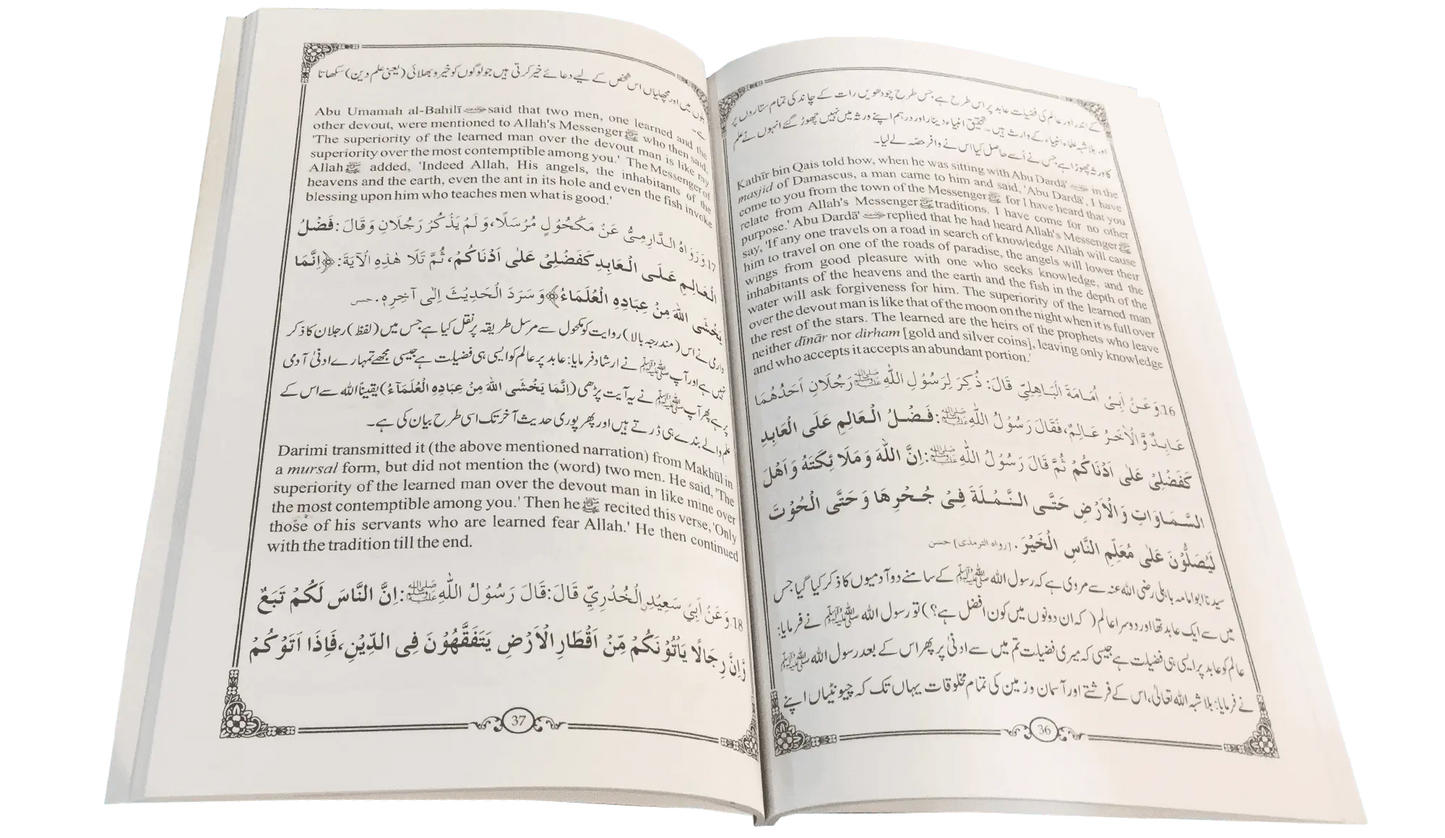 کے اندر اور عالم کی فضیلت عابد پر اس طرح ہے جس طرح چودھویں رات کے چاند کی تمام ستاروں پر
اور بلاشبہ علماء انبیاء کے وارث ہیں۔ تحقیق انبیاء دینار اور درہم اپنے ورثہ میں نہیں چھوڑ گئے انہوں نے علم
کا ورثہ چھوڑا ہے جس نے اُسے حاصل کیا اس نے وافر حصّہ لے لیا۔
Kathīr bin Qais told how, when he was sitting with Abu Dardā' in the
masjid of Damascus, a man came to him and said, 'Abu Dardā', I have
come to you from the town of the Messenger ﷺ for I have heard that you
relate from Allah's Messenger ﷺ traditions. I have come for no other
purpose.' Abu Dardā' replied that he had heard Allah's Messenger ﷺ
say, 'If any one travels on a road in search of knowledge Allah will cause
him to travel on one of the roads of paradise, the angels will lower their
wings from good pleasure with one who seeks knowledge, and the
inhabitants of the heavens and the earth and the fish in the depth of the
water will ask forgiveness for him. The superiority of the learned man
over the devout man is like that of the moon on the night when it is full over
the rest of the stars. The learned are the heirs of the prophets who leave
neither dīnār nor dirham [gold and silver coins], leaving only knowledge
and who accepts it accepts an abundant portion.'
16. وَعَنْ اَبِیْ اُمَامَةَ الْبَاهِلِيِّ قَالَ: ذُکِرَ لِرَسُوْلِ اللّٰهِ ﷺ رَجُلَانِ اَحَدُهُمَا
عَابِدٌ وَّالْاٰخَرُ عَالِمٌ، فَقَالَ رَسُوْلُ اللّٰهِ ﷺ: فَضْلُ الْعَالِمِ عَلَى الْعَابِدِ
کَفَضْلِیْ عَلٰی اَدْنَاکُمْ ثُمَّ قَالَ رَسُوْلُ اللّٰهِ ﷺ: اِنَّ اللّٰهَ وَمَلَائِکَتَهٗ وَاَهْلَ
السَّمَاوَاتِ وَالْاَرْضِ حَتَّى النَّمْلَةَ فِیْ جُحْرِهَا وَحَتَّى الْحُوْتَ
لَيُصَلُّوْنَ عَلٰى مُعَلِّمِ النَّاسِ الْخَيْرَ. [رواه الترمذي] حسن
سیدنا ابو امامہ باہلی رضی اللہ عنہ سے مروی ہے کہ رسول اللہ ﷺ کے سامنے دو آدمیوں کا ذکر کیا گیا جس
میں سے ایک عابد تھا اور دوسرا عالم (کہ ان دونوں میں کون افضل ہے؟) تو رسول اللہ ﷺ نے فرمایا:
عالم کو عابد پر ایسی ہی فضیلت ہے جیسی کہ میری فضیلت تم میں سے ادنیٰ پر پھر اس کے بعد رسول اللہ ﷺ
نے فرمایا: بلاشبہ اللہ تعالیٰ، اس کے فرشتے اور آسمان و زمین کی تمام مخلوقات یہاں تک کہ چیونٹیاں اپنے
36
بلوں میں اور مچھلیاں اس شخص کے لیے دعائے خیر کرتی ہیں جو لوگوں کو خیر و بھلائی (یعنی علم دین) سکھاتا
ہے۔
Abu Umamah al-Bahilī said that two men, one learned and the
other devout, were mentioned to Allah's Messenger ﷺ who then said,
'The superiority of the learned man over the devout man is like my
superiority over the most contemptible among you.' The Messenger of
Allah ﷺ added, 'Indeed Allah, His angels, the inhabitants of the
heavens and the earth, even the ant in its hole and even the fish invoke
blessing upon him who teaches men what is good.'
17. وَرَوَاهُ الدَّارِمِيُّ عَنْ مَکْحُوْلٍ مُرْسَلًا، وَلَمْ يَذْکُرْ رَجُلَانِ وَقَالَ: فَضْلُ
الْعَالِمِ عَلَى الْعَابِدِ کَفَضْلِیْ عَلٰی اَدْنَاکُمْ، ثُمَّ تَلَا هٰذِهِ الْاٰيَةَ: ﴿اِنَّمَا
يَخْشَى اللّٰهَ مِنْ عِبَادِهِ الْعُلَمَاءُ﴾ وَسَرَدَ الْحَدِيْثَ اِلٰى آخِرِهٖ. حسن
دارمی نے اس (مندرجہ بالا) روایت کو مکحول سے مرسل طریقہ پر نقل کیا ہے جس میں (لفظ) رجلان کا ذکر
نہیں ہے اور آپ ﷺ نے ارشاد فرمایا: عابد پر عالم کو ایسی ہی فضیلت ہے جیسی مجھے تمہارے ادنیٰ آدمی
پر ہے پھر آپ ﷺ نے یہ آیت پڑھی (اِنَّمَا يَخْشَى اللّٰهَ مِنْ عِبَادِهِ الْعُلَمَآءُ) یقیناً اللہ سے اس کے
علم والے بندے ہی ڈرتے ہیں اور پھر پوری حدیث آخر تک اسی طرح بیان کی ہے۔
Darimi transmitted it (the above mentioned narration) from Makhūl in
a mursal form, but did not mention the (word) two men. He said, 'The
superiority of the learned man over the devout man in like mine over
the most contemptible among you.' Then he ﷺ recited this verse, 'Only
those of his servants who are learned fear Allah.' He then continued
with the tradition till the end.
18. وَعَنْ اَبِيْ سَعِيْدِ الْخُدْرِيِّ قَالَ: قَالَ رَسُوْلُ اللّٰهِ ﷺ: اِنَّ النَّاسَ لَکُمْ تَبَعٌ
وَّاِنَّ رِجَالًا يَاْتُوْنَکُمْ مِّنْ اَقْطَارِ الْاَرْضِ يَتَفَقَّهُوْنَ فِى الدِّيْنِ، فَاِذَا اَتَوْکُمْ
37